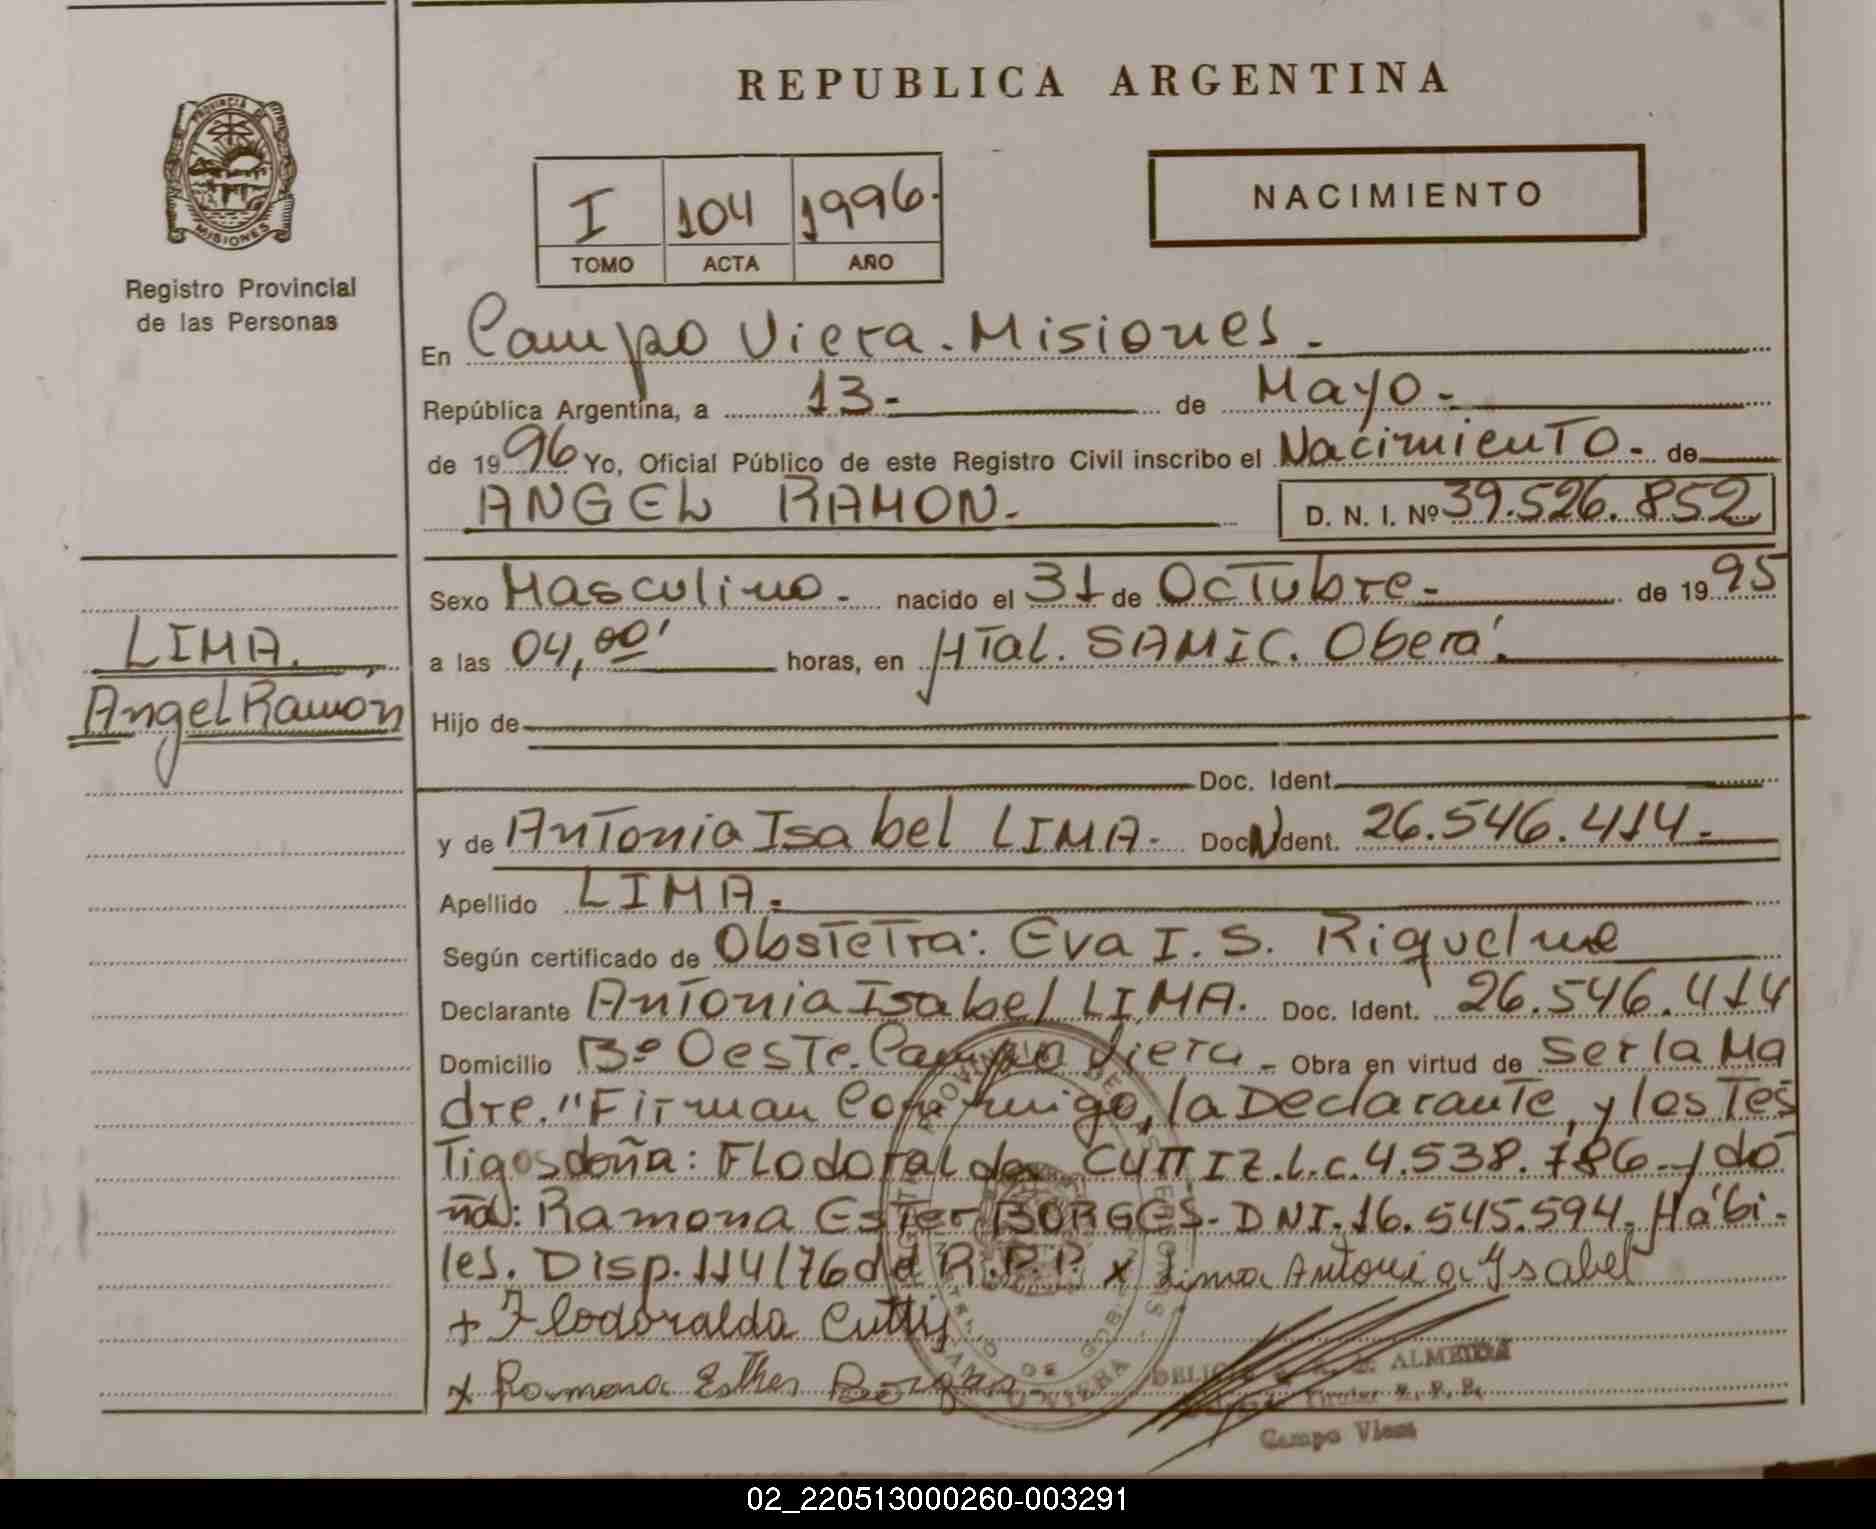 REPUBLICA ARGENTINA
PROVINCIA DE
MISIONES
Registro Provincial
de las Personas
I 104 1996.
TOMO ACTA AÑO
NACIMIENTO
En Campo Viera. Misiones.
República Argentina, a 13 - de Mayo -
de 1996 Yo, Oficial Público de este Registro Civil inscribo el Nacimiento. de
ANGEL RAMON. D. N. I. Nº 39.526.852
LIMA.
Angel Ramon
Sexo Masculino. nacido el 31 de Octubre - de 1995
a las 04,00' horas, en Htal. SAMIC. Oberá.
Hijo de
Doc. Ident.
y de Antonia Isabel LIMA. Doc. Ident. 26.546.414.
Apellido LIMA.
Según certificado de Obstetra: Eva I. S. Riquelme
Declarante Antonia Isabel LIMA. Doc. Ident. 26.546.414
Domicilio Bº Oeste. Campo Viera - Obra en virtud de ser la Ma
dre. "Firman Conmigo, la Declarante, y los Tes
Tigos doña: Flodoralda CUTTIZ. L.C. 4.538.786 - y do
ña: Ramona Ester BORGES - DNI. 16.545.594. Hábi-
les. Disp. 114/76 del R.P.P. x Lima Antonia Ysabel
+ Flodoralda Cutty
x Ramona Esther
ALMEIDA
Titular R. P. P.
Campo Viera
02_220513000260-003291